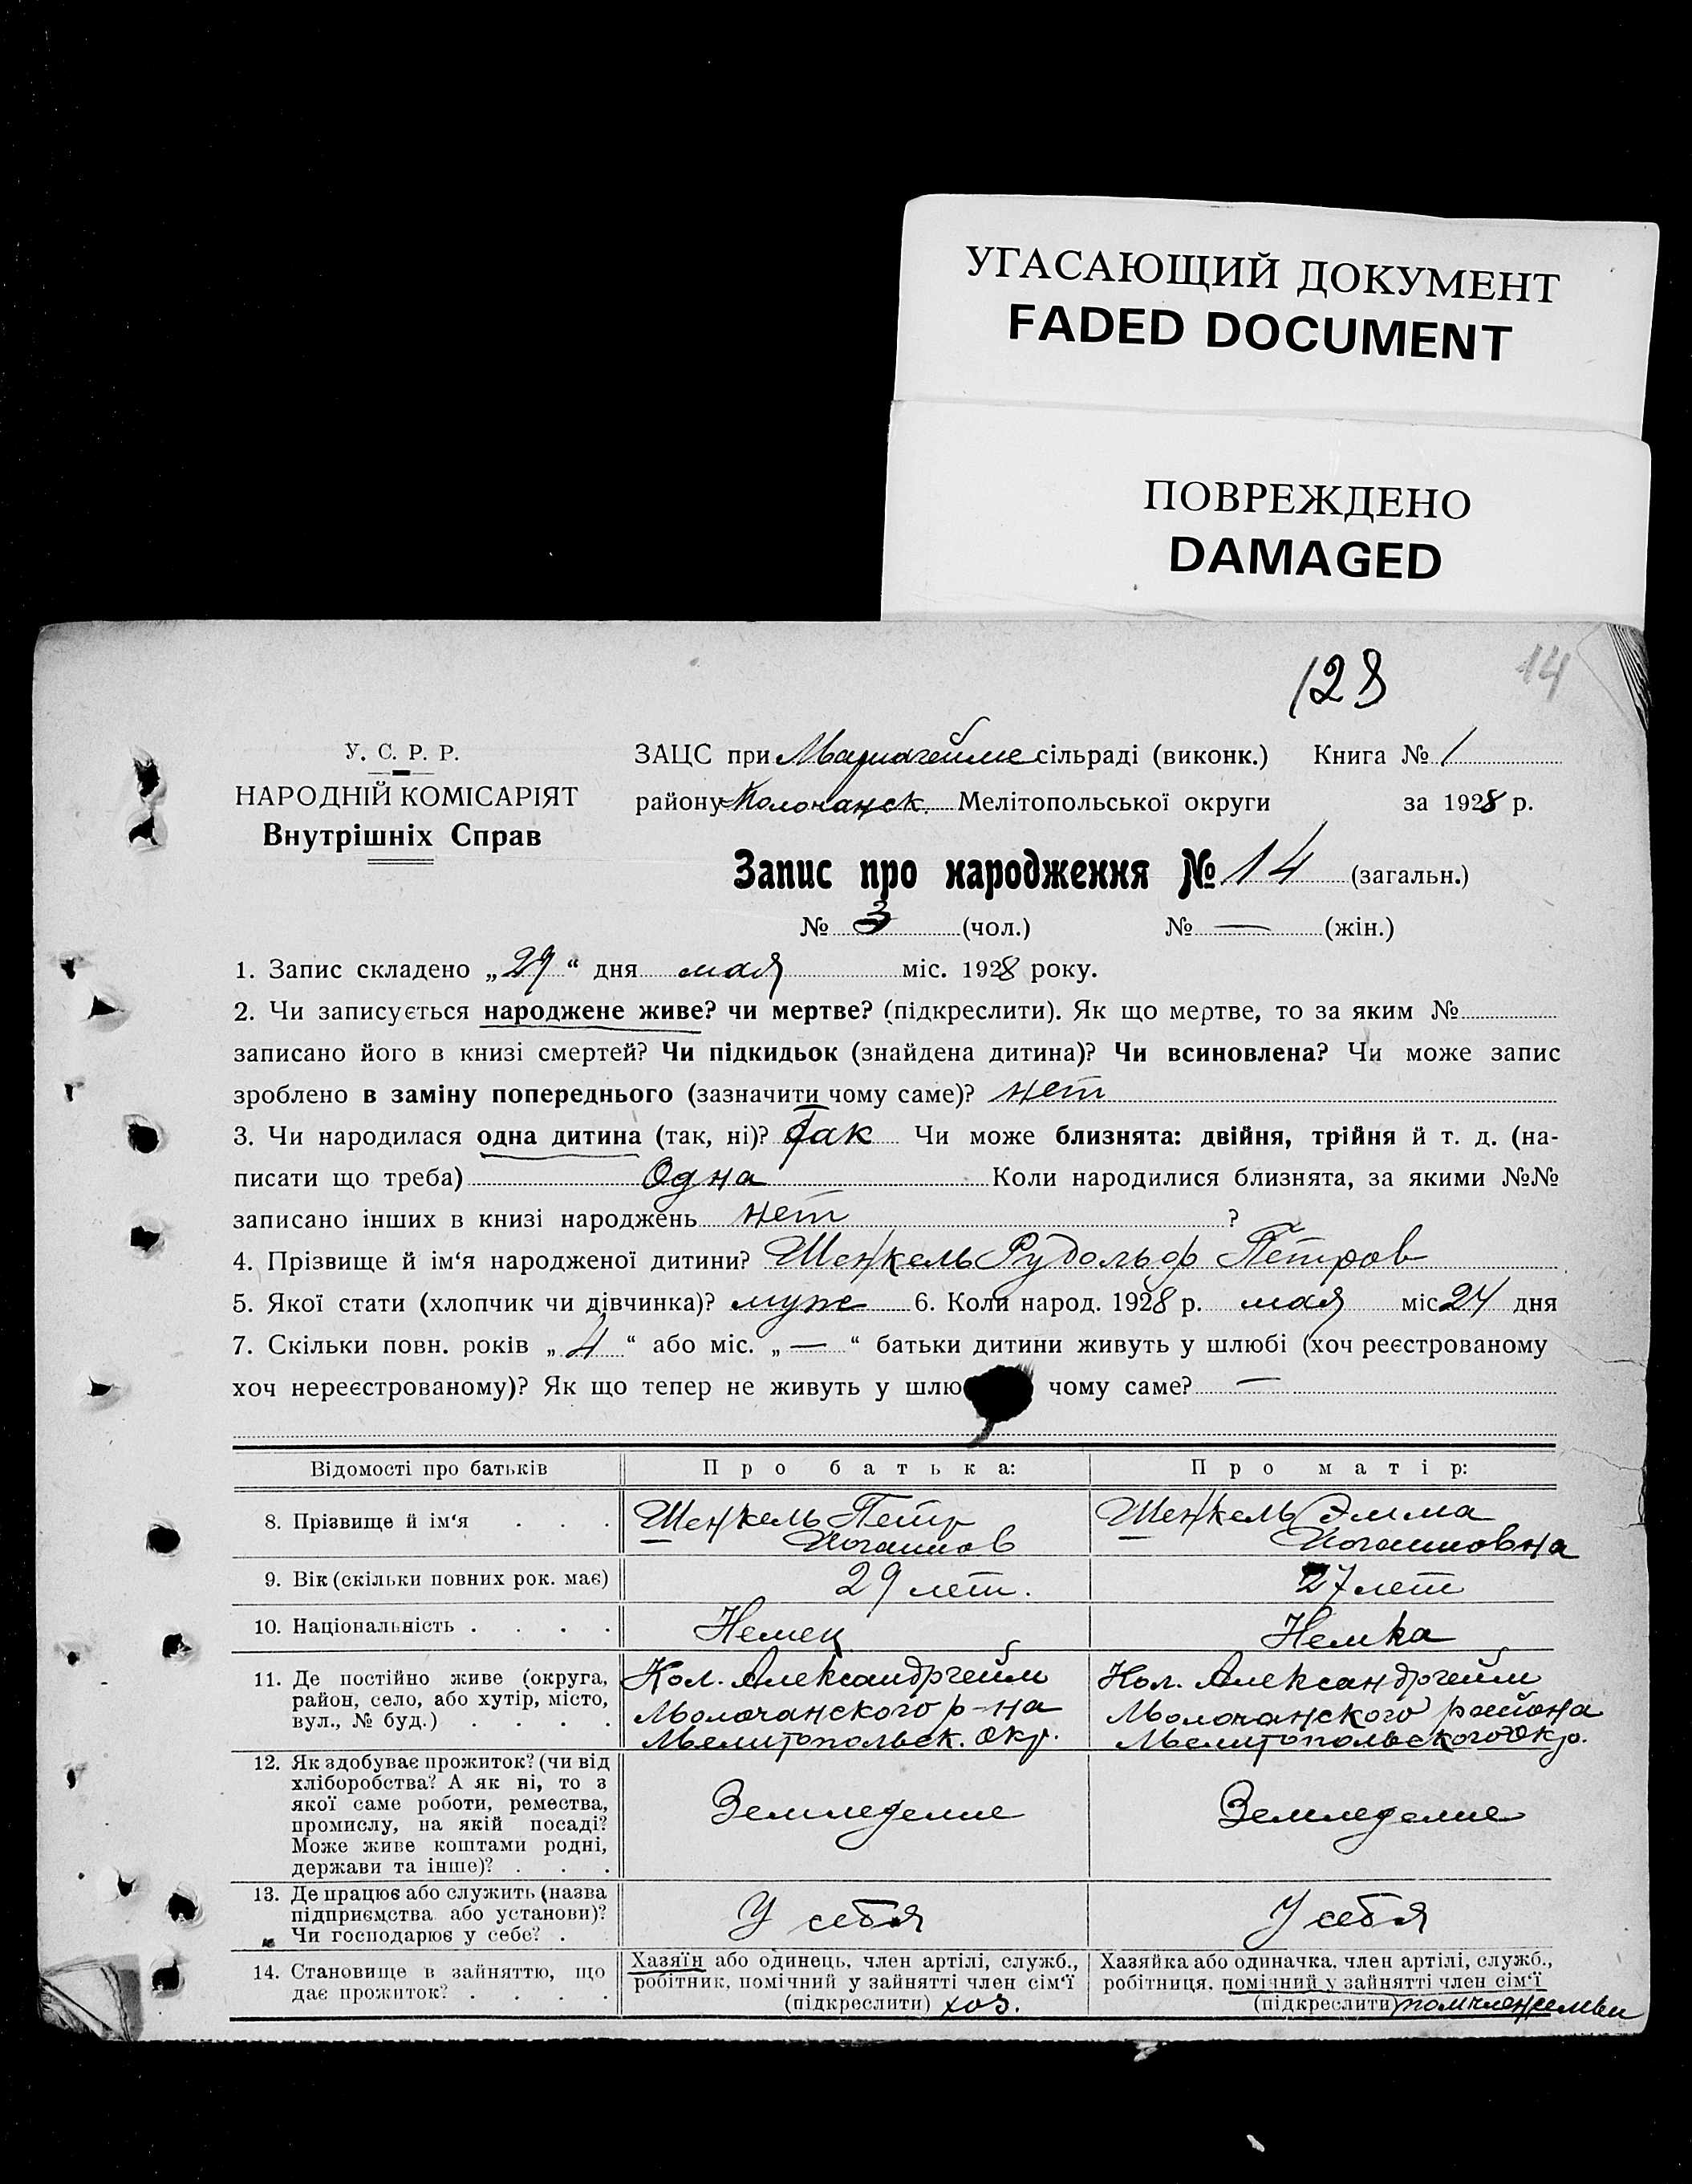 УГАСАЮЩИЙ ДОКУМЕНТ
FADED DOCUMENT
ПОВРЕЖДЕНО
DAMAGED
128 14
У. С. Р. Р.
НАРОДНІЙ КОМІСАРІЯТ
Внутрішніх Справ
ЗАЦС при Мариагейме сільраді (виконк.) Книга № 1
району Молочанск. Мелітопольської округи за 1928 р.
Запис про народження № 14 (загальн.)
№ 3 (чол.) № — (жін.)
1. Запис складено „29“ дня мая міс. 1928 року.
2. Чи записується народжене живе? чи мертве? (підкреслити). Як що мертве, то за яким №
записано його в книзі смертей? Чи підкидьок (знайдена дитина)? Чи всиновлена? Чи може запис
зроблено в заміну попереднього (зазначити чому саме)? нет
3. Чи народилася одна дитина (так, ні)? Так Чи може близнята: двійня, трійня й т. д. (на-
писати що треба) Одна Коли народилися близнята, за якими №№
записано інших в книзі народжень нет ?
4. Прізвище й ім‘я народженої дитини? Шенкель Рудольф Петров
5. Якої стати (хлопчик чи дівчинка)? муже 6. Коли народ. 1928 р. мая міс 24 дня
7. Скільки повн. років „4“ або міс. „—“ батьки дитини живуть у шлюбі (хоч реєстрованому
хоч нереєстрованому)? Як що тепер не живуть у шлю чому саме? —
Відомості про батьків П р о б а т ь к а: П р о м а т і р:
8. Прізвище й ім‘я Шенкель Петр Шенкель Эмма
Иоганнов Иоганновна
9. Вік (скільки повних рок. має) 29 лет. 27 лет
10. Національність Немец Немка
11. Де постійно живе (округа, Кол. Александргейм Кол. Александргейм
район, село, або хутір, місто, Молочанского р-на Молочанского района
вул., № буд.) Мелитопольск. Окр. Мелитопольского Окр.
12. Як здобуває прожиток? (чи від
хліборобства? А як ні, то з
якої саме роботи, ремества, Земледелие Земледелие
промислу, на якій посаді?
Може живе коштами родні,
держави та інше)?
13. Де працює або служить (назва
підприємства або установи)? У себя У себя
Чи господарює у себе?
14. Становище в зайняттю, що Хазяїн або одинець, член артілі, служб., Хазяйка або одиначка, член артілі, служб.,
дає прожиток? робітник, помічний у зайнятті член сім‘ї робітниця, помічний у зайнятті член сім‘ї
(підкреслити) хоз. (підкреслити) пом член семьи